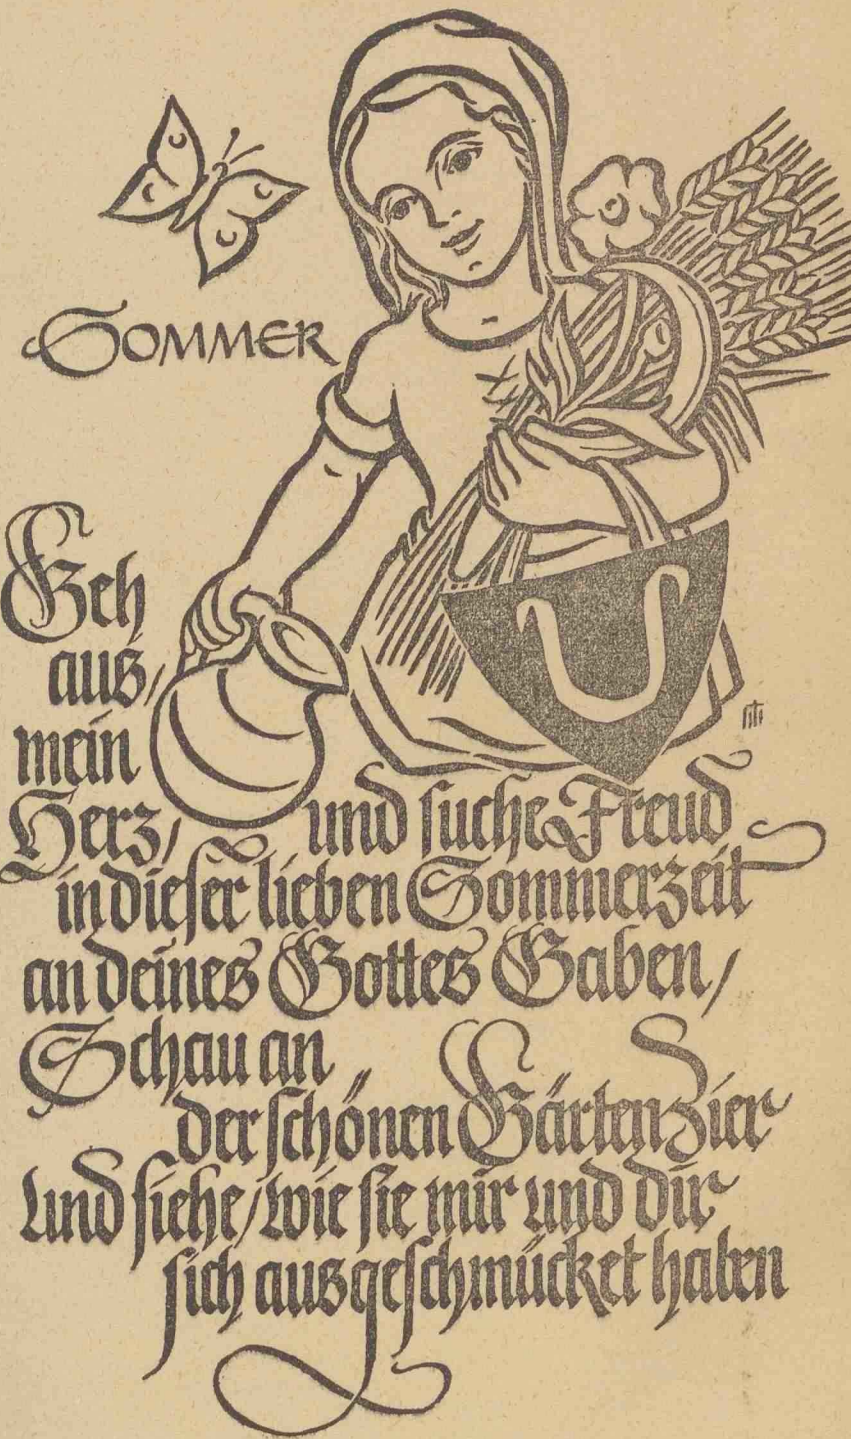 SOMMER
Geh
aus,
mein
Herz, und suche Freud
in dieser lieben Sommerzeit
an deines Gottes Gaben,
Schau an
der schönen Gärten Zier
und siehe, wie sie mir und dir
sich ausgeschmücket haben